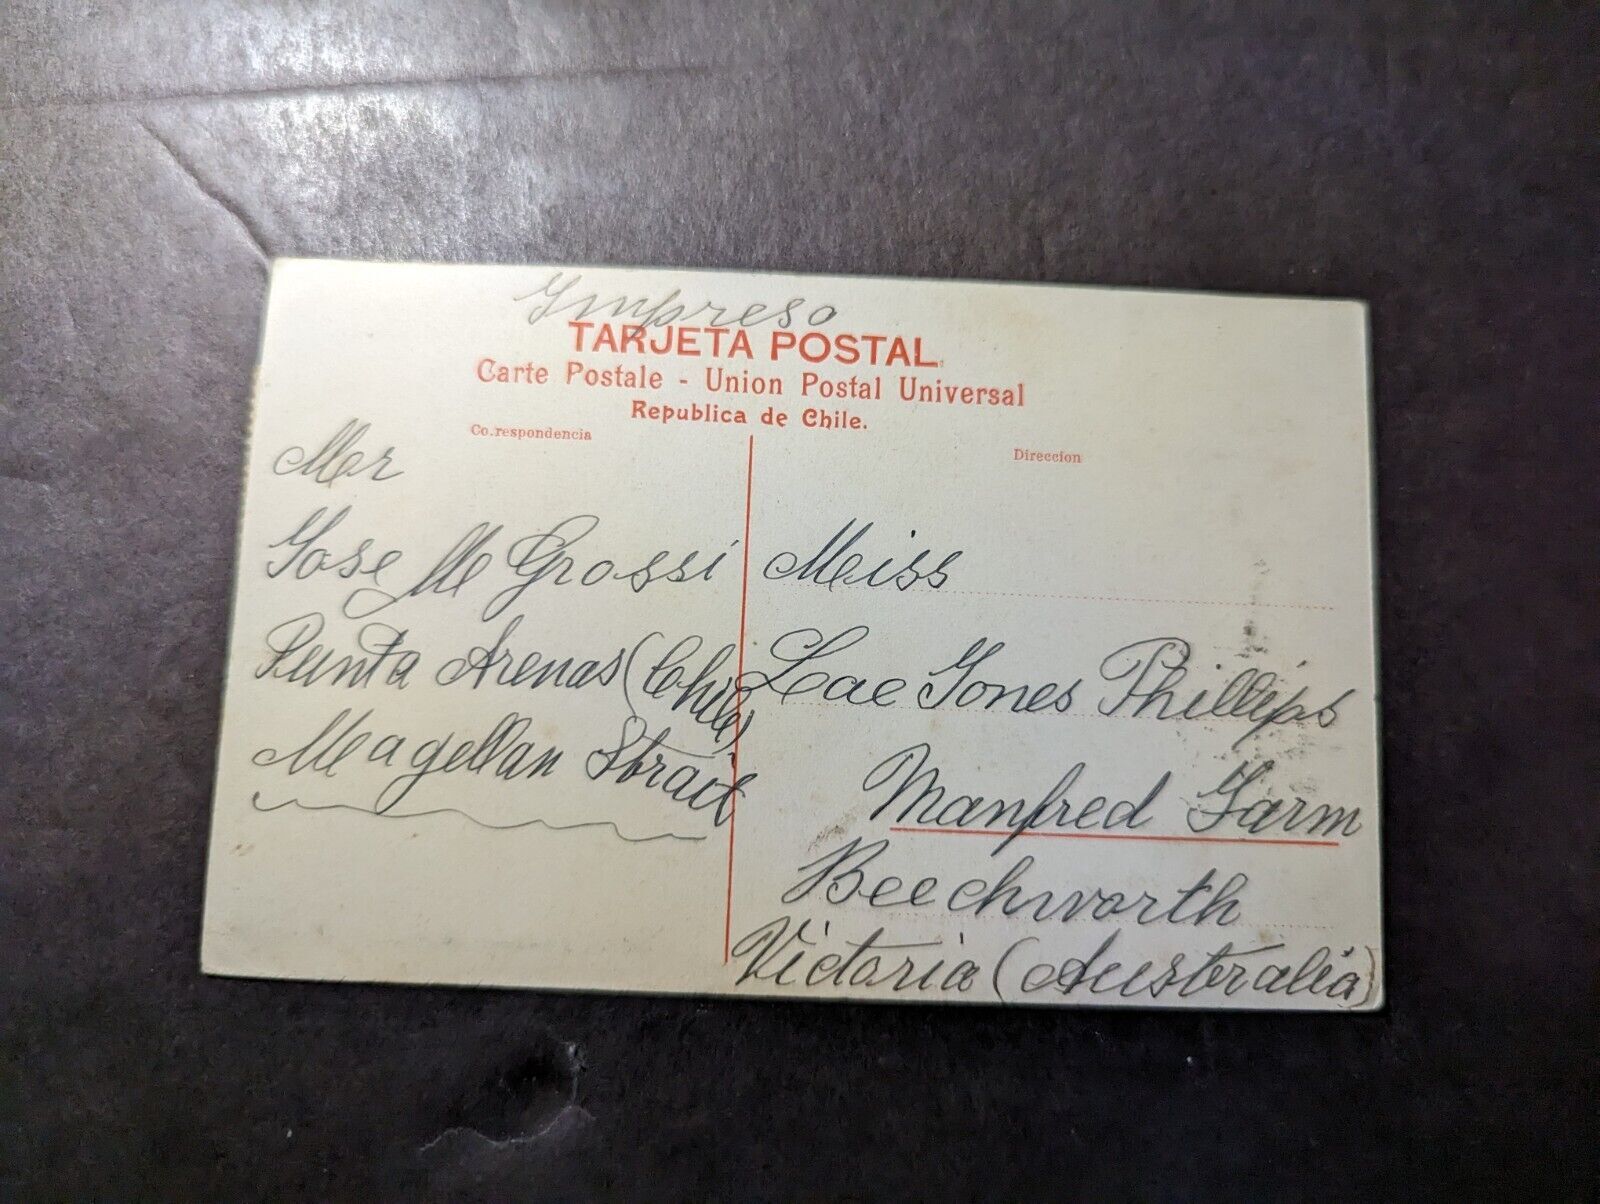 Impreso
TARJETA POSTAL.
Carte Postale - Union Postal Universal
Republica de Chile.
Co.respondencia
Direccion
Mer
Jose M Grossi
Punta Arenas (Chile)
Magellan Strait
Meiss
Leae Jones Phillips
Manfred Farm
Beechworth
Victoria (Australia)